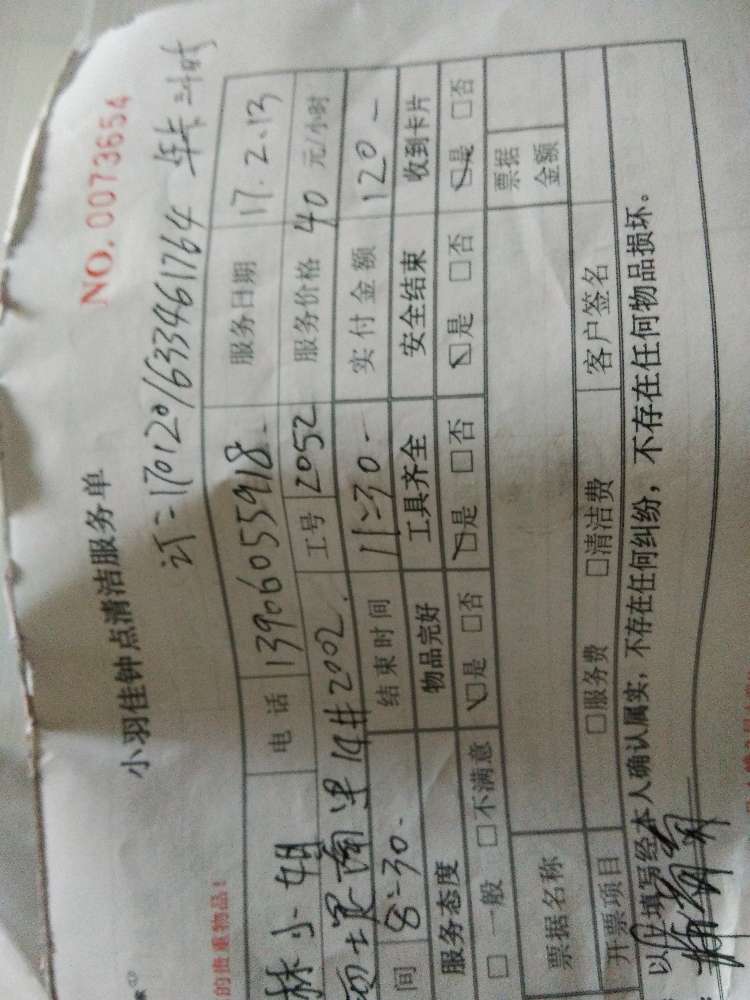 NO. 0073654
小羽佳钟点清洁服务单
订=170120163346 1764 年卡三小时
的贵重物品！
林小姐 电话 13906055918 服务日期 17.2.13
里14#2002 工号 2052 服务价格 40 元/小时
间 8=30 结束时间 11=30 实付金额 120
服务态度 物品完好 工具齐全 安全结束 收到卡片
□一般 □不满意 □是 □否 □是 □否 □是 □否 □是 □否
票据名称 票据金额
开票项目 □服务费 □清洁费 客户签名
以上填写经本人确认属实，不存在任何纠纷，不存在任何物品损坏。